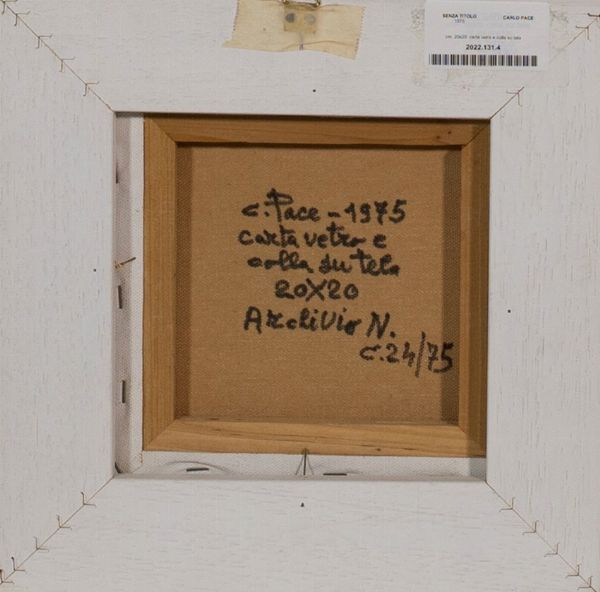 SENZA TITOLO CARLO PACE
1975
cm. 20x20 carta vetro e colla su tela
2022.131.4
C. Pace - 1975
carta vetro e
colla su tela
20X20
Archivio N.
C. 24/75